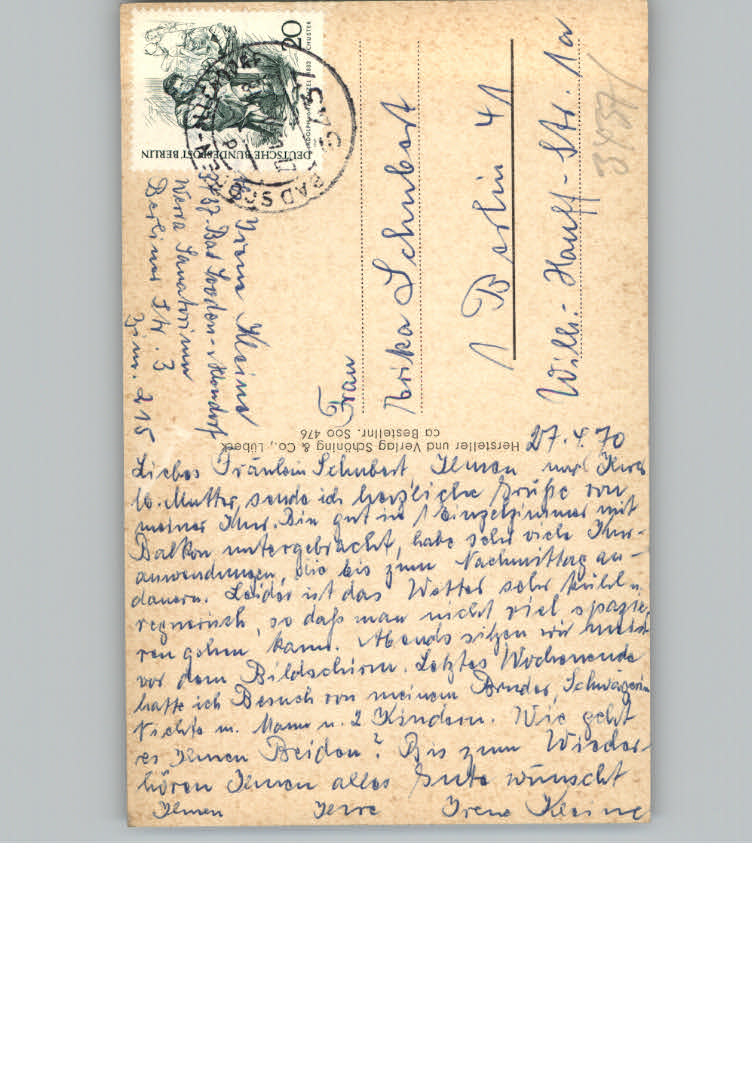 27.4.70
Liebes Fräulein Schubert, Ihnen und Ihrer
lb. Mutter, sende ich herzliche Grüße von
meiner Kur. Bin gut in 1 Einzelzimmer mit
Balkon untergebracht, habe sehr viele Kur-
anwendungen, die bis zum Nachmittag an-
dauern. Leider ist das Wetter sehr kühl u.
regnerisch, so daß man nicht viel spazie-
ren gehen kann. Abends sitzen wir meist
vor dem Bildschirm. Letztes Wochenende
hatte ich Besuch von meinem Bruder, Schwägerin
Nichte m. Mann u. 2 Kindern. Wie geht
es Ihnen Beiden? Bis zum Wieder-
hören Ihnen alles Gute wünscht
Ihnen Ihre Irene Kleine
Irene Kleine
3437 Bad Sooden-Allendorf
Werra Sanatorium
Berliner Str. 3
Zim. 215
Frau
Erika Schubert
1 Berlin 41
Wilh.-Hauff-Str. 1a
3437
20
DEUTSCHE BUNDESPOST BERLIN
BAD SOODEN-ALLENDORF
Hersteller und Verlag Schöning & Co., Lübeck
ca Bestellnr. Soo 476